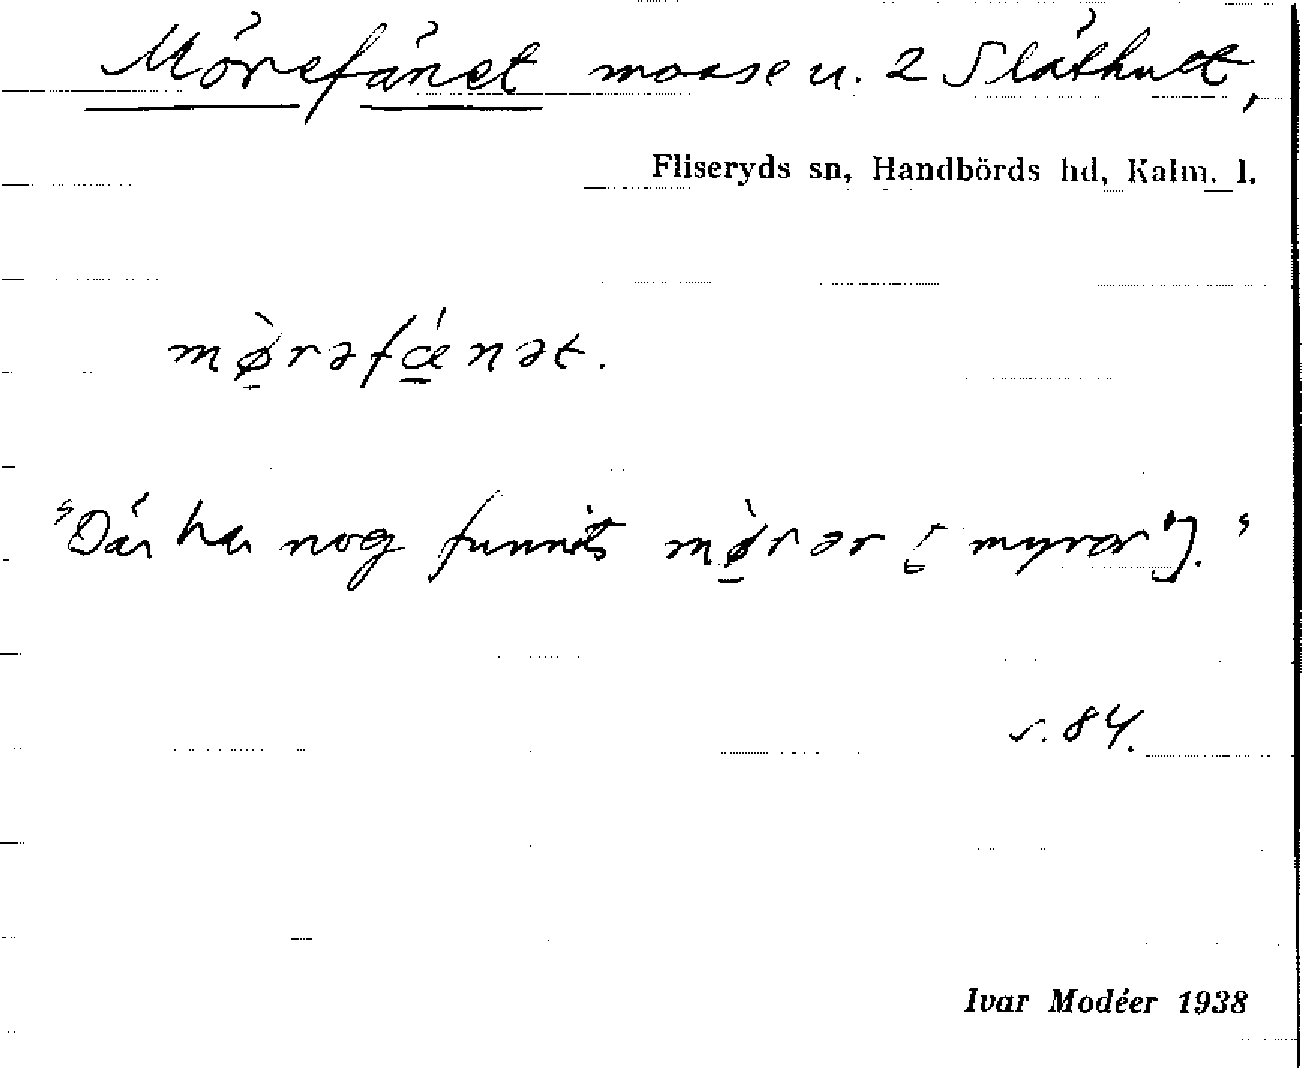 Mörefänet mosse u. 2 Släthult,
Fliseryds sn, Handbörds hd, Kalm. l.
mø̀rəfǽnət.
"Där har nog funnits mø̀rər ["myrar"]."
s. 84.
Ivar Modéer 1938